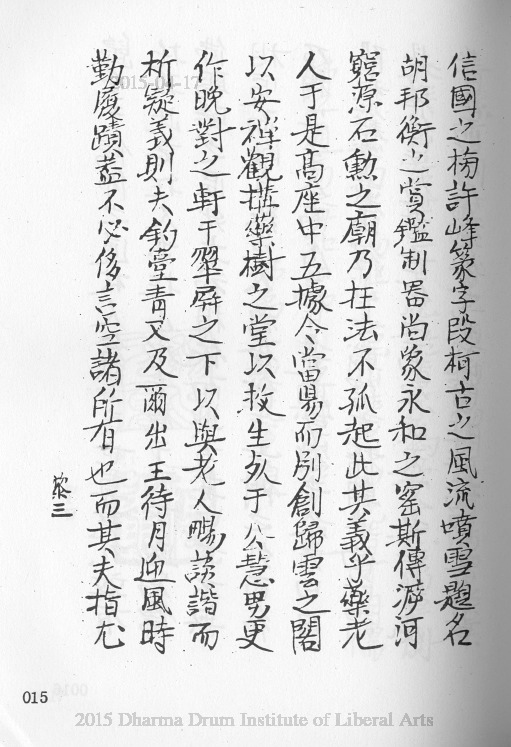 信國之榜許峰篆字段柯古之風流噴雪題名
胡邦衡之賞鑑制器尚象永和之窑斯傳游河
窮源石勳之廟乃在法不孤起此其義乎藥老
人于是高座中五據令當陽而別創歸雲之閣
以安禪觀搆藥樹之堂以救生夂于公慧男更
作晚對之軒于翠屏之下以與老人暢談諧而
析疑義則夫釣臺青又及爾出王待月迎風時
勤屐蹟葢不必侈言空諸所有也而其夫指尤
黎三
015
2015-04-17
2015 Dharma Drum Institute of Liberal Arts